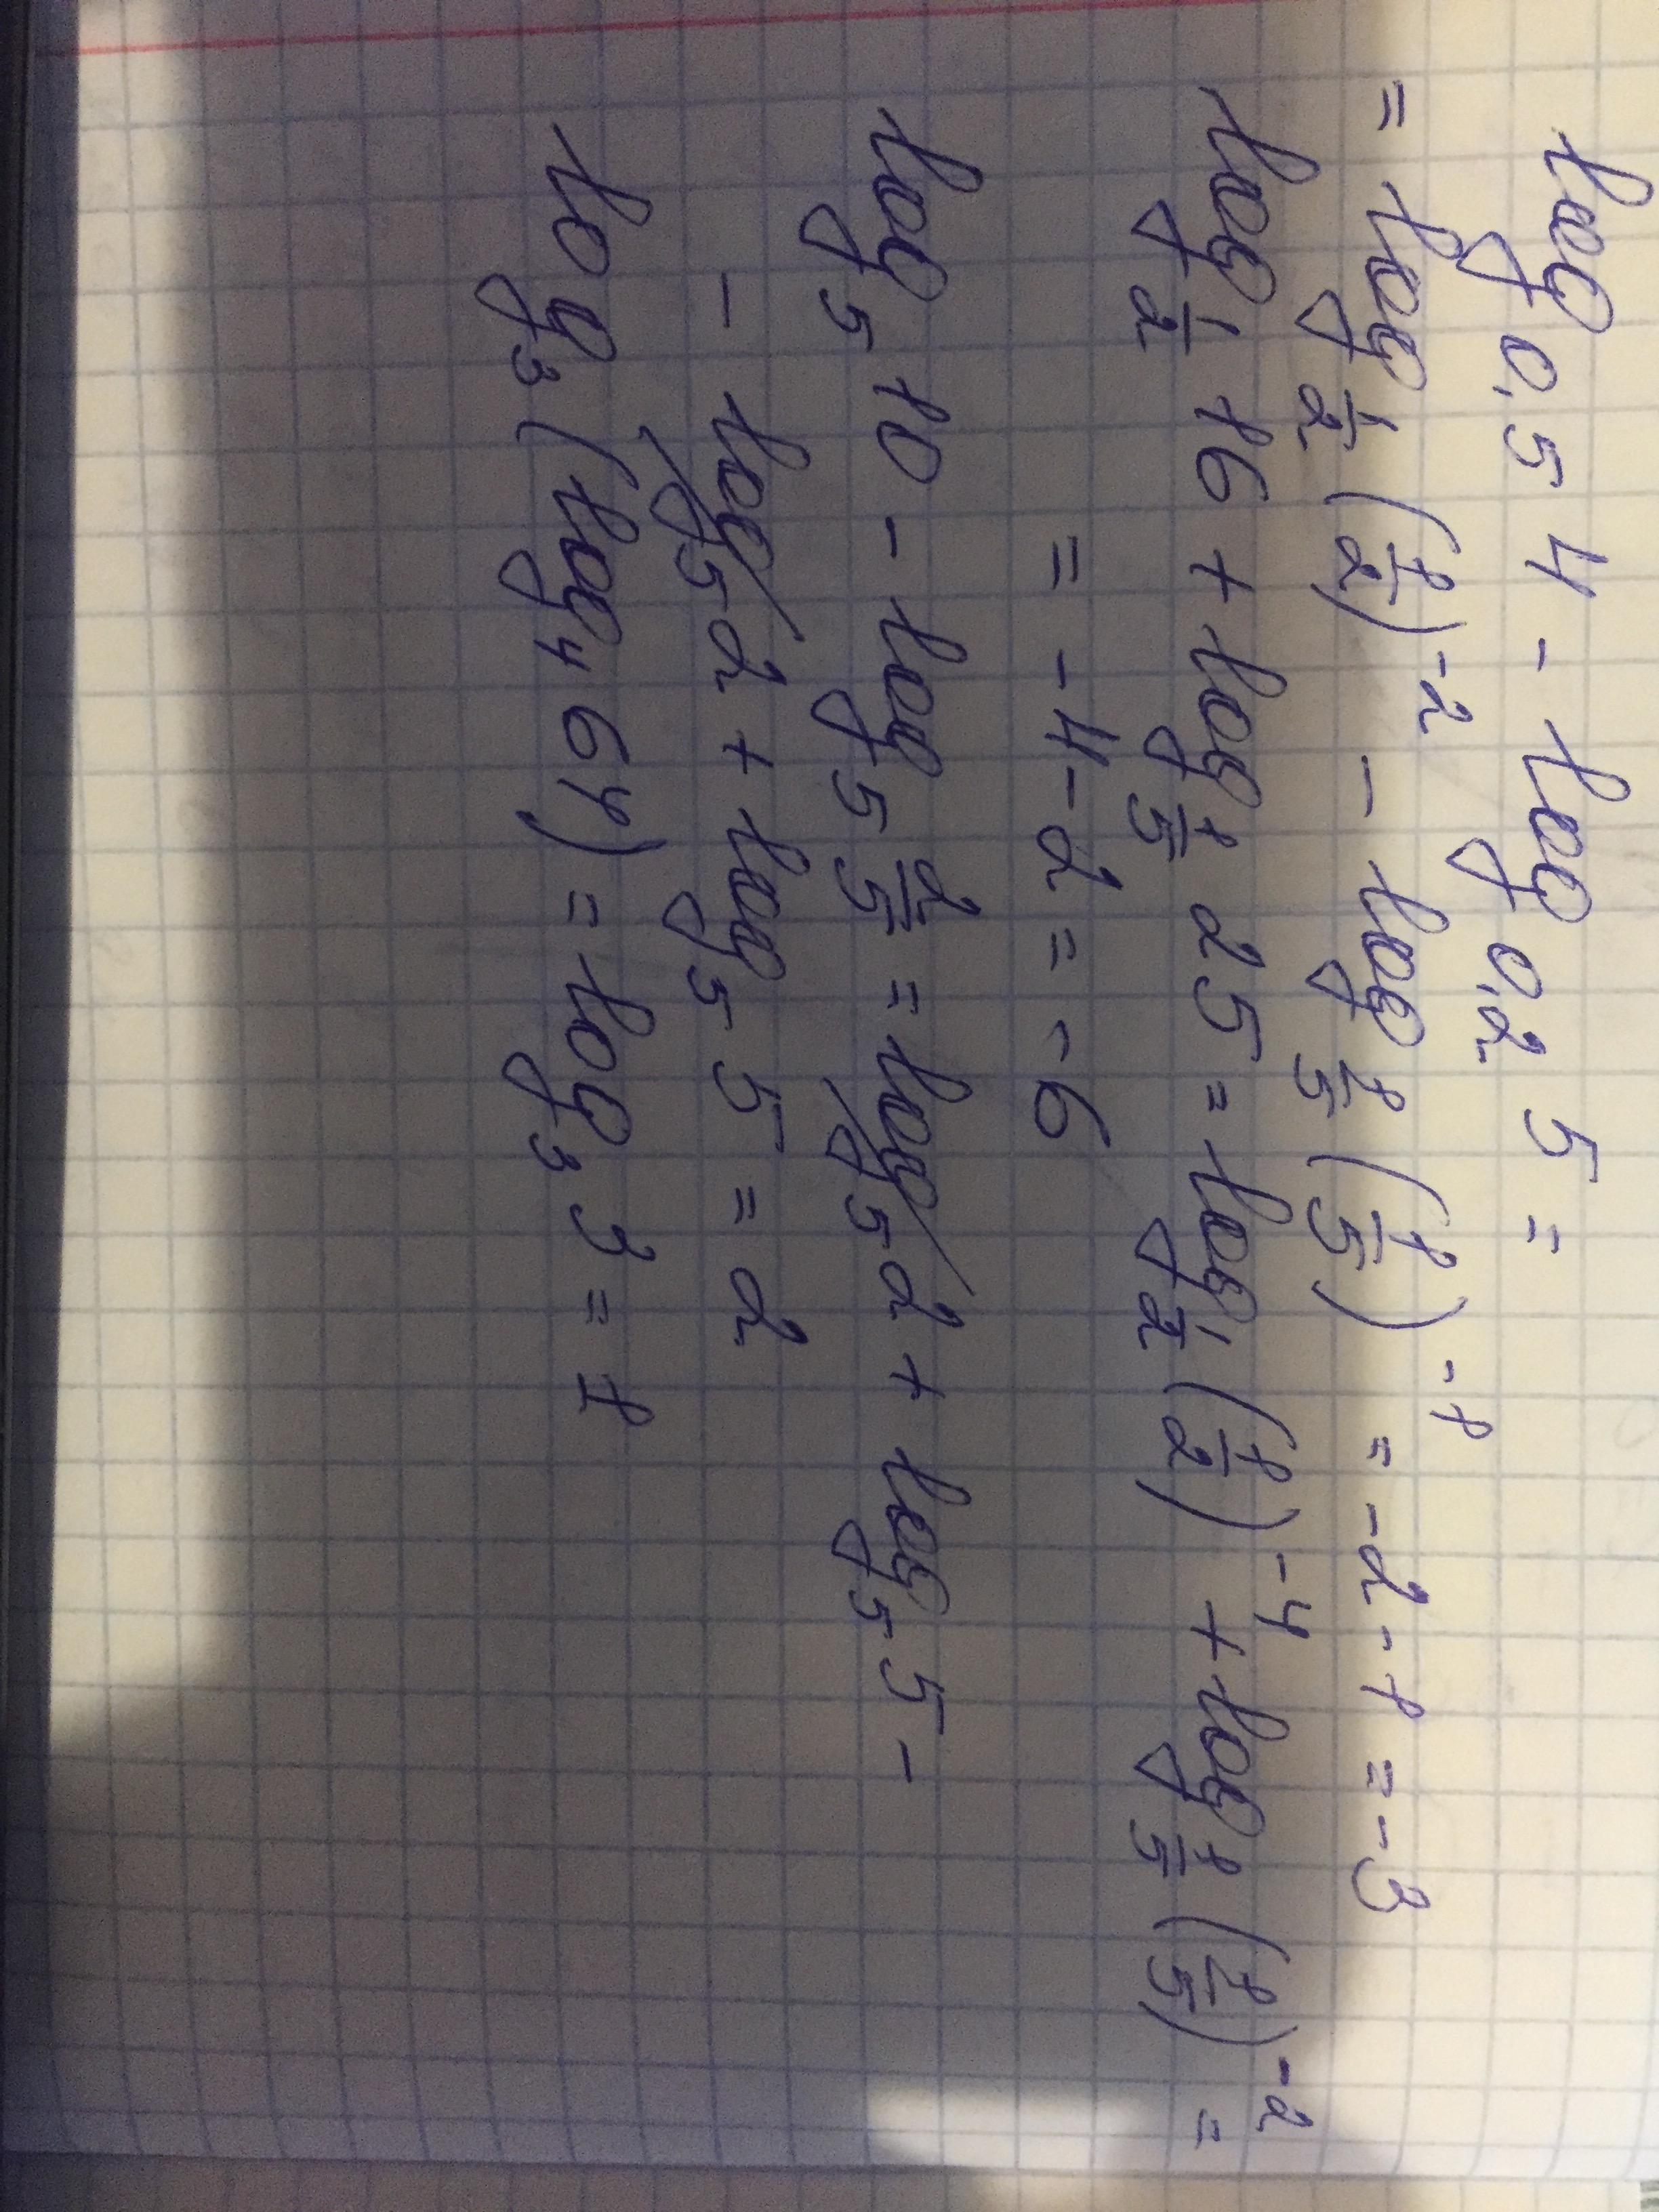 log 0,5 4 - log 0,2 5 =
= log 1/2 (1/2)^-2 - log 1/5 (1/5)^-1 = -2 - 1 = -3
log 1/2 16 + log 1/5 25 = log 1/2 (1/2)^-4 + log 1/5 (1/5)^-2 =
= -4 - 2 = -6
log 5 10 - log 5 2/5 = log 5 2 + log 5 5 -
- log 5 2 + log 5 5 = 2
log 3 (log 4 64) = log 3 3 = 1